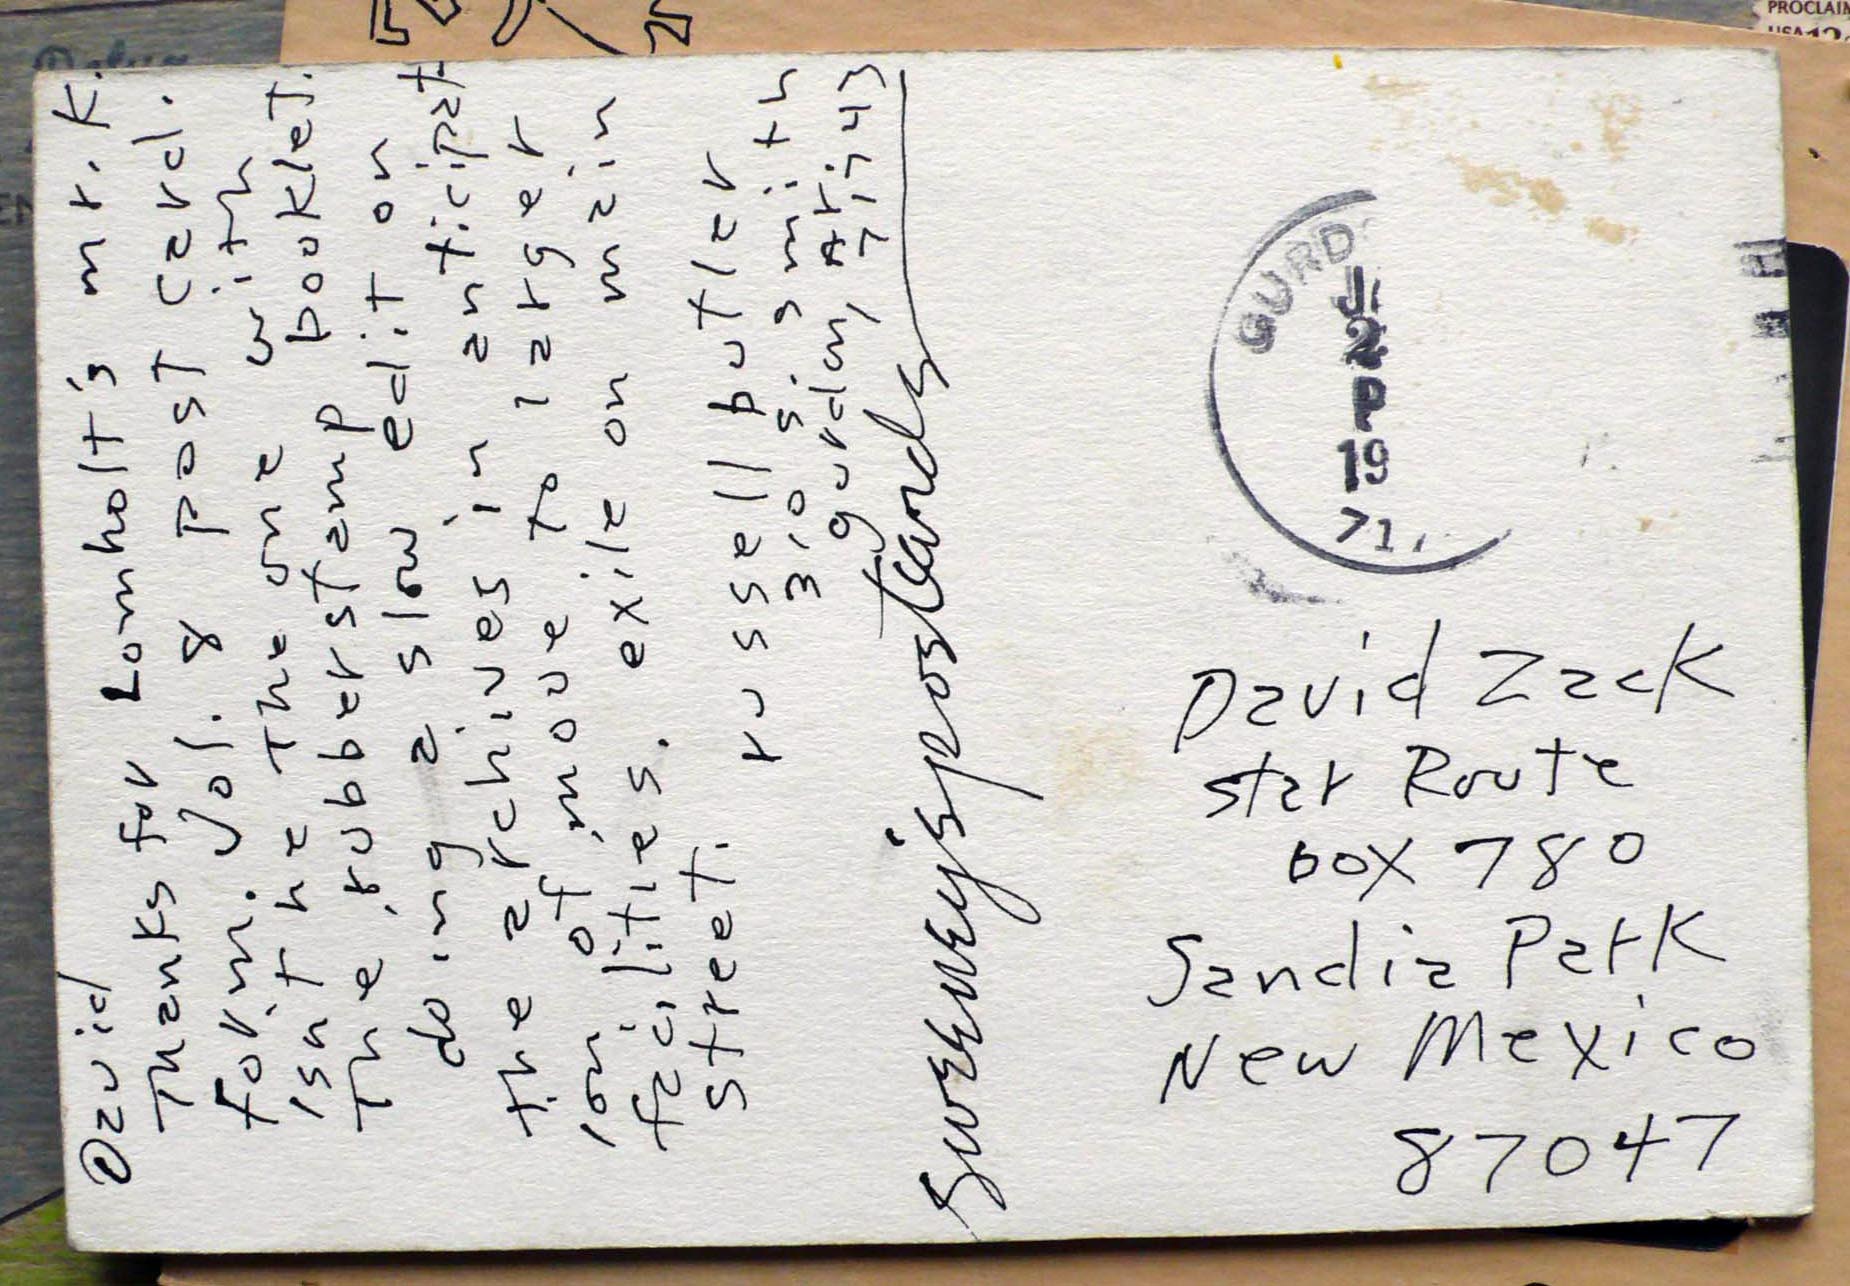 David
Thanks for Lomholt's mr. K.
form. Vol. 8 post card.
isn't he the one with
the rubberstamp booklet.
doing a slow edit on
the archives in anticipat
ion of move to larger
facilities. exile on main
street.
russell butler
310 s. smith
gurdon, Ark. 71743
sweeney's postcards
GURD
2
P
19
71
David Zack
star Route
box 780
Sandia Park
New Mexico
87047
PROCLAIM